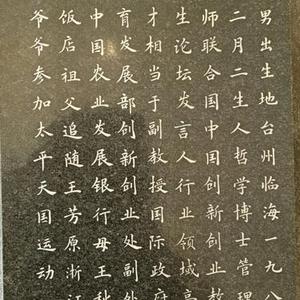 男出生地台州临海一九八
二月二生人哲学博士管理
师联合国中国创新创业教
生论坛发言人行业领域高
才相当于副教授国际政府
育发展部创新创业处副处
中国农业发展银行母王秋
饭店祖父追随王芳原浙江
爷爷参加太平天国运动